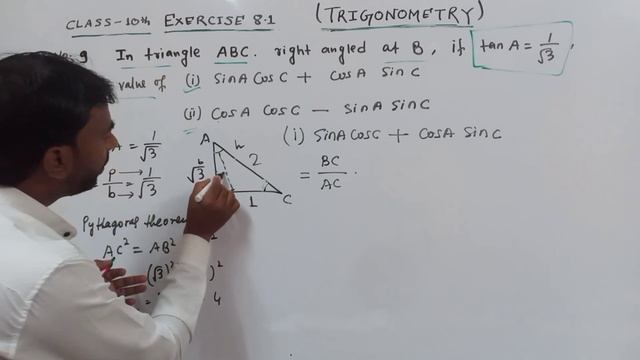 CLASS-10th EXERCISE 8.1 (TRIGONOMETRY)
9 In triangle ABC. right angled at B, if tan A = 1/√3,
value of (i) SinA CosC + CosA SinC
(ii) CosA CosC − SinA SinC
A = 1/√3
P/b = 1/√3
A h 2 b √3 1 C
(i) SinA CosC + CosA SinC
= BC/AC .
Pythagoras theorem
AC² = AB² ²
(√3)² )²
= 4